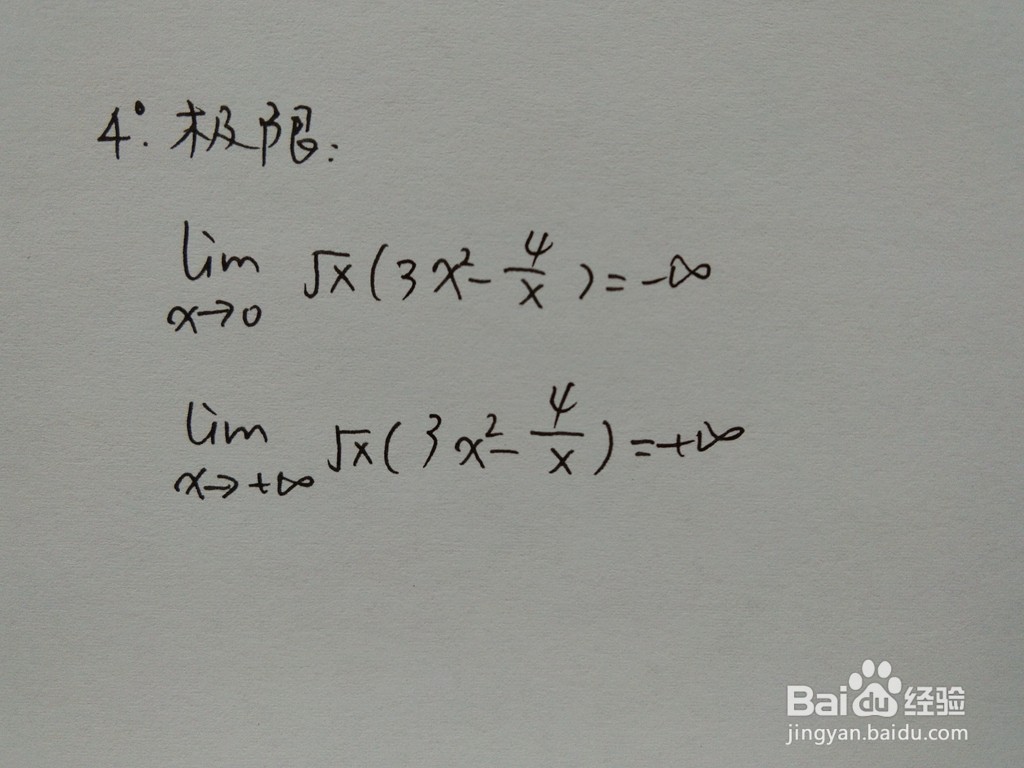 4°. 极限:
lim x→0 √x(3x²-4/x)=-∞
lim x→+∞ √x(3x²-4/x)=+∞
Baidu经验
jingyan.baidu.com